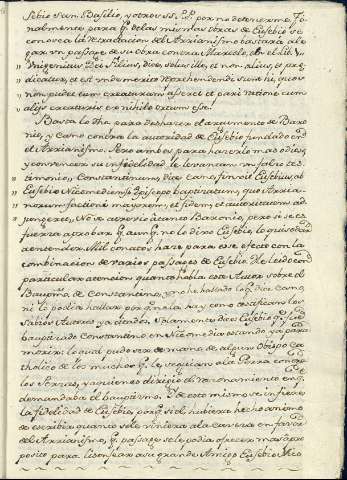 sebio, San Basilio, y otros SS. PP. por no detenerme. Fi-
nalmente, para q. de las mismas obras de Eusebio se
conozca la detestacion del Arrianismo bastará ale-
gar un pasage de su obra contra Marcelo, en el lib. 1.
Unigenitus Dei Filius, dice, solus ille, et non alius, et præ-
dicatur, et est unde merito reprehendendi sunt hi, quos
non pudet eum creaturam asserere et pari ratione cum
alijs creaturis ex nihilo ortum esse.
Basta lo dho para deshacer el argumento de Baro-
nio, y Cano contra la autoridad de Eusebio fundado en
el Arrianismo. Pero ambos para hacerlo mas odioso,
y convencer su infidelidad, le levantan un falso tes-
timonio, Constantinum, dice Cano, finxit Eusebius ab
Eusebio Nicomediensi Episcopo baptizatum, quo Arria-
norum factioni majorem, et fidem, et autoritatem ad-
jungeret. No se atrevió a tanto Baronio, pero si se es-
fuerza a probar q. aunq. no lo dixo Eusebio, lo quiso dar
a entender. Mil conatos hace para ese efecto con la
combinacion de varios pasages de Eusebio. He leido con
particular atencion quanto habla este Autor sobre el
Bautismo de Constantino, y no he hallado lo q. dice Cano,
ni lo podia hallar por q. no lo hay como certifican los
Sabios Autores ya citados. Solamente dice Eusebio q. fue
bautizado Constantino en Nicomedia estando ya para
morir: lo qual pudo ser de mano de algun Obispo Ca-
tholico de los muchos q. le seguian a la Guerra contra
los Persas, y a quienes dirigió el razonamiento en q.
demandaba el bautismo. De esto mismo se infiere
la fidelidad de Eusebio, porq. si el hubiera hecho animo
de escribir quanto se le viniera a la cavesa en favor
del Arrianismo, q. passage se le podia ofrecer mas apro-
posito para lisonjear a su grande Amigo Eusebio Nico